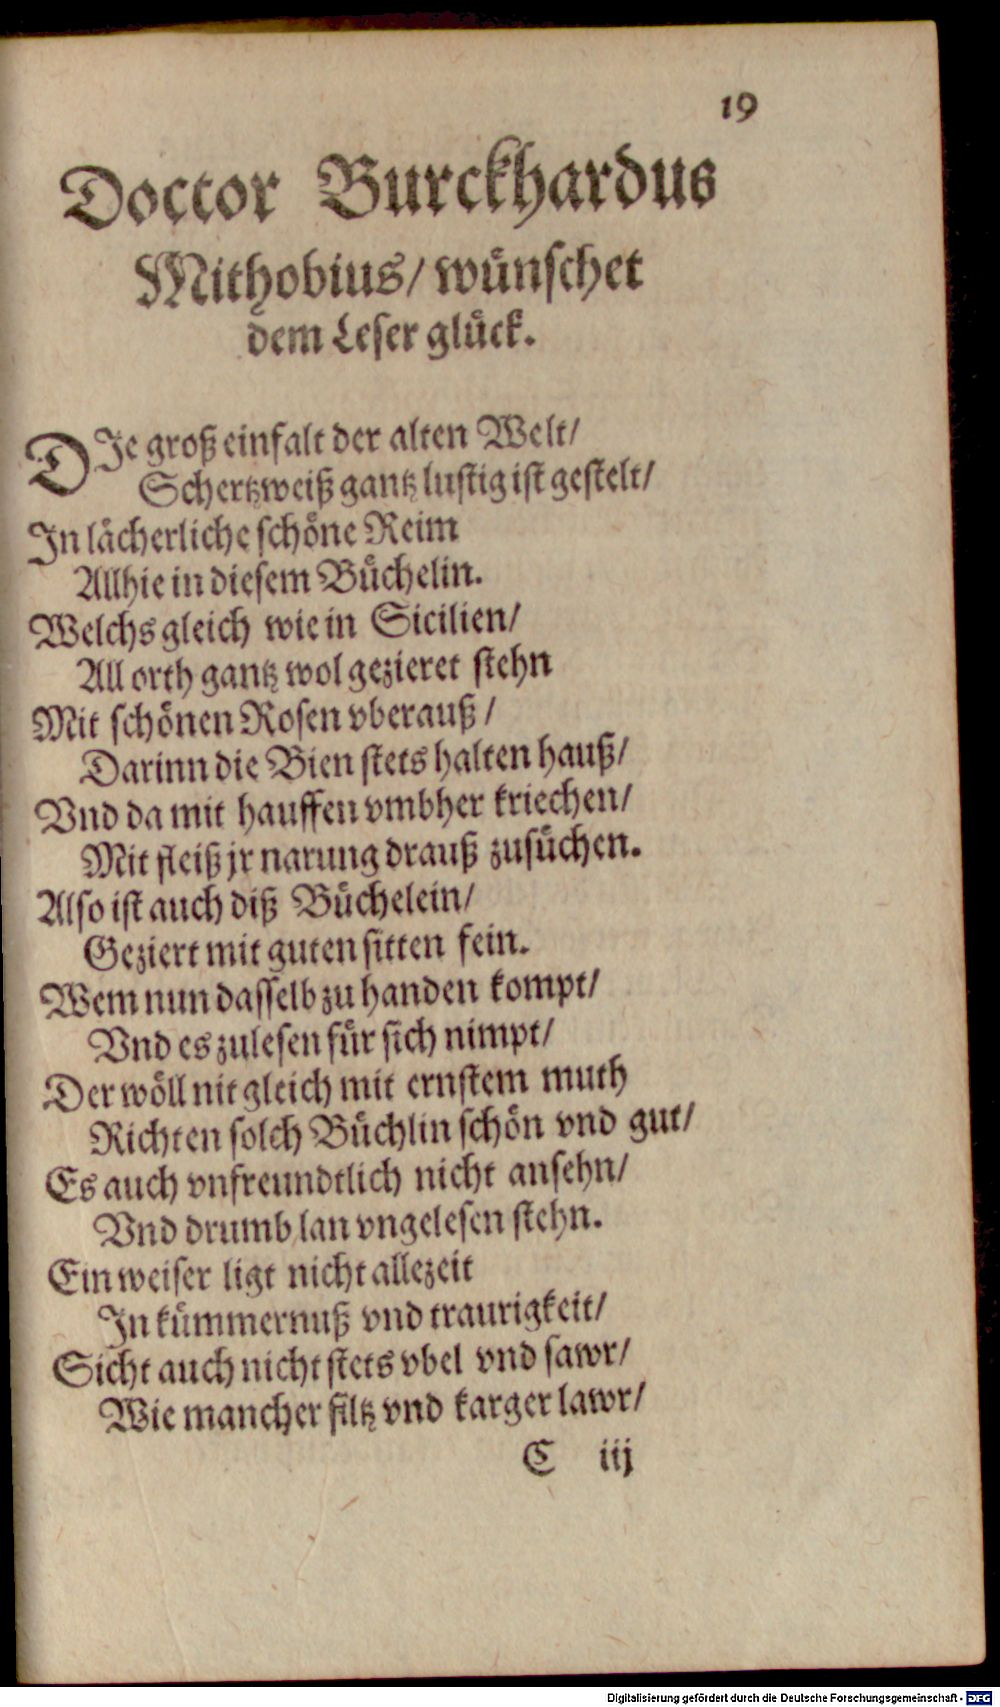 19
Doctor Burckhardus
Mithobius/ wünschet
dem Leser glück.
DIe groß einfalt der alten Welt/
Schertzweiß gantz lustig ist gestelt/
In lächerliche schöne Reim
Allhie in diesem Büchelin.
Welchs gleich wie in Sicilien/
All orth gantz wol gezieret stehn
Mit schönen Rosen vberauß /
Darinn die Bien stets halten hauß/
Vnd da mit hauffen vmbher kriechen/
Mit fleiß jr narung drauß zusüchen.
Also ist auch diß Büchelein/
Geziert mit guten sitten fein.
Wem nun dasselb zu handen kompt/
Vnd es zulesen für sich nimpt/
Der wöll nit gleich mit ernstem muth
Richten solch Büchlin schön vnd gut/
Es auch vnfreundtlich nicht ansehn/
Vnd drumb lan vngelesen stehn.
Ein weiser ligt nicht allezeit
In kümmernuß vnd traurigkeit/
Sicht auch nicht stets vbel vnd sawr/
Wie mancher filtz vnd karger lawr/
C iij
Digitalisierung gefördert durch die Deutsche Forschungsgemeinschaft - DFG